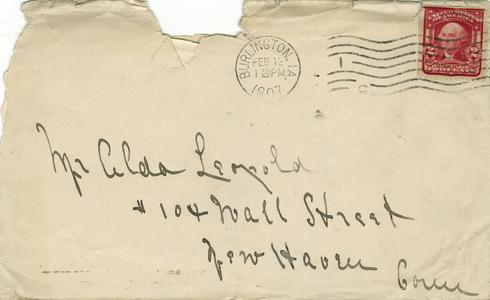 BURLINGTON, IA.
FEB 12
1 30 PM
1907
UNITED STATES
OF AMERICA
2 2
TWO CENTS
Mr Alda Leopold
# 104 Wall Street
New Haven
Conn